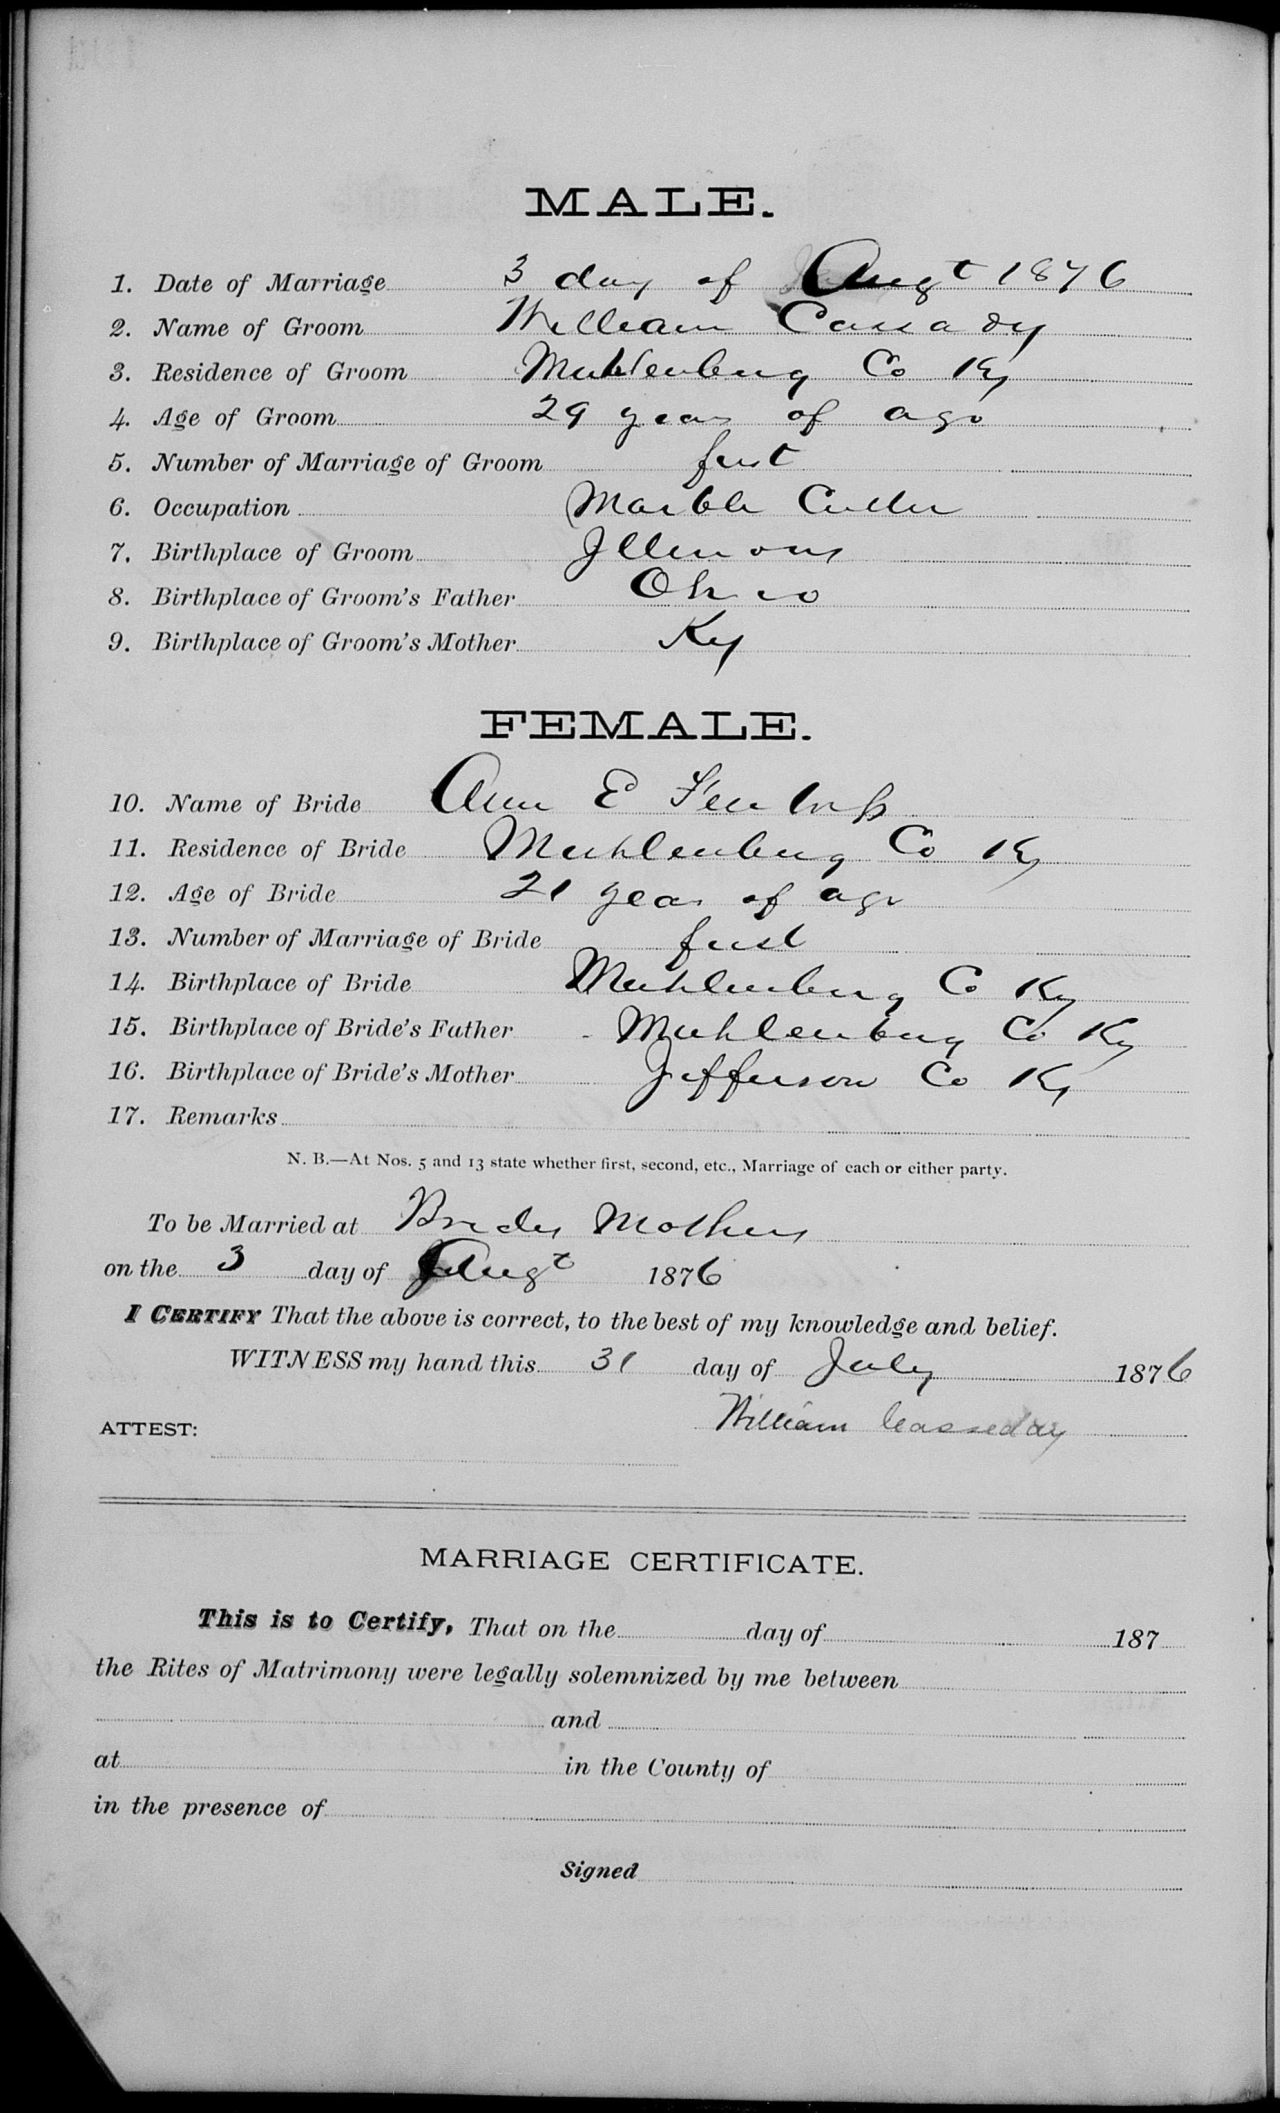 MALE.
1. Date of Marriage 3 day of Augt 1876
2. Name of Groom William Cassady
3. Residence of Groom Muhlenburg Co Ky
4. Age of Groom 29 years of age
5. Number of Marriage of Groom first
6. Occupation Marble Cutter
7. Birthplace of Groom Illenois
8. Birthplace of Groom's Father Ohio
9. Birthplace of Groom's Mother Ky
FEMALE.
10. Name of Bride Ann E
11. Residence of Bride Muhlenburg Co Ky
12. Age of Bride 21 years of age
13. Number of Marriage of Bride first
14. Birthplace of Bride Muhlenburg Co Ky
15. Birthplace of Bride's Father Muhlenburg Co Ky
16. Birthplace of Bride's Mother Jefferson Co Ky
17. Remarks
N. B.—At Nos. 5 and 13 state whether first, second, etc., Marriage of each or either party.
To be Married at Brides Mothers
on the 3 day of Augt 1876
I CERTIFY That the above is correct, to the best of my knowledge and belief.
WITNESS my hand this 31 day of July 1876
William Casseday
ATTEST:
MARRIAGE CERTIFICATE.
This is to Certify, That on the day of 187
the Rites of Matrimony were legally solemnized by me between
and
at in the County of
in the presence of
Signed